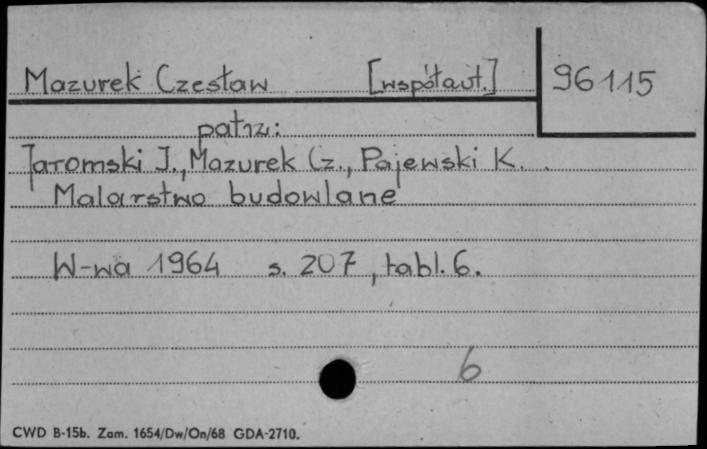 Mazurek Czesław [współaut.] 96115
patrz:
Jaromski J., Mazurek Cz., Pajewski K.
Malarstwo budowlane
W-wa 1964 s. 207, tabl. 6.
6
CWD B-15b. Zam. 1654/Dw/On/68 GDA-2710.